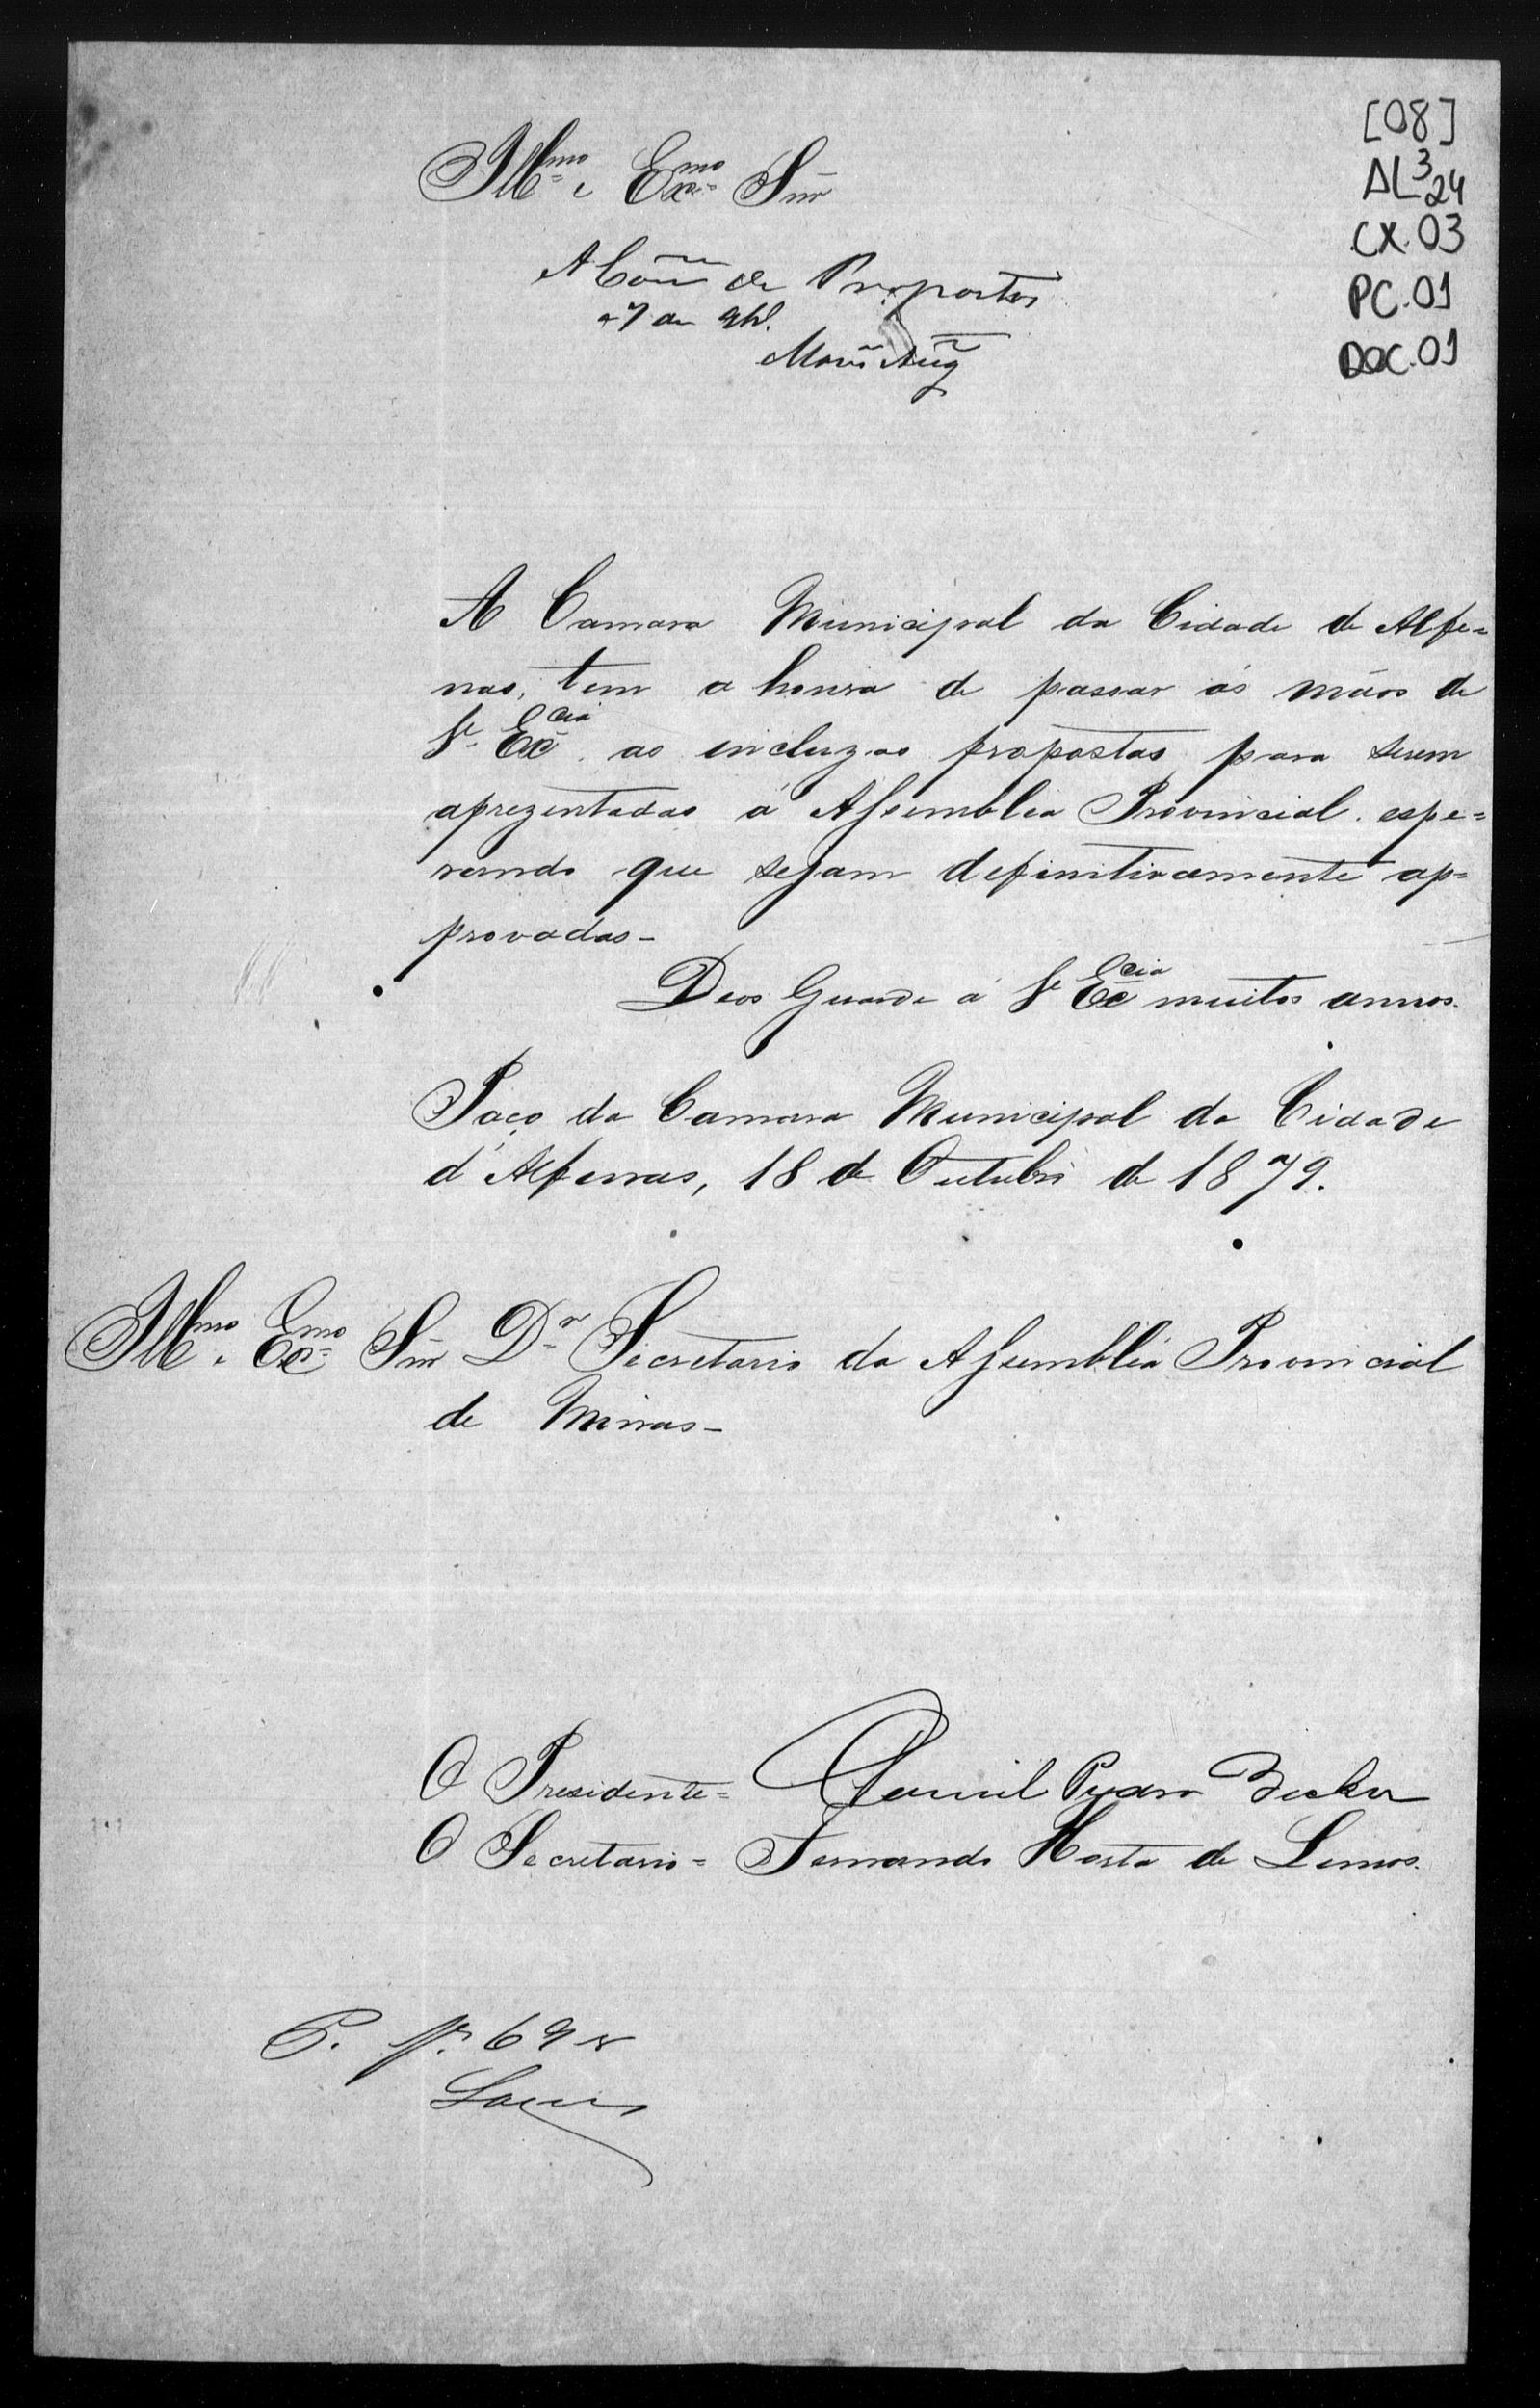 [08]
AL³24
CX.03
PC.01
DOC.01
Illmo e Exmo Snr
A Com de Propostas
A Camara Municipal da Cidade de Alfe=
nas, tem a honra de passar ás mãos de
Va Excia as incluzas propostas para serem
aprezentadas á Assemblea Provincial. espe=
rando que sejam definitivamente ap=
provadas-
Deos Guarde á Va Excia muitos annos.
Paço da Camara Municipal da Cidade
d'Alfenas, 18 de Outubro de 1879.
Illmo e Exmo Snr Dr Secretario da Assemblea Provincial
de Minas-
O Presidente= Daniel Pedro
O Secretario= Fernando Horta de Lemos.